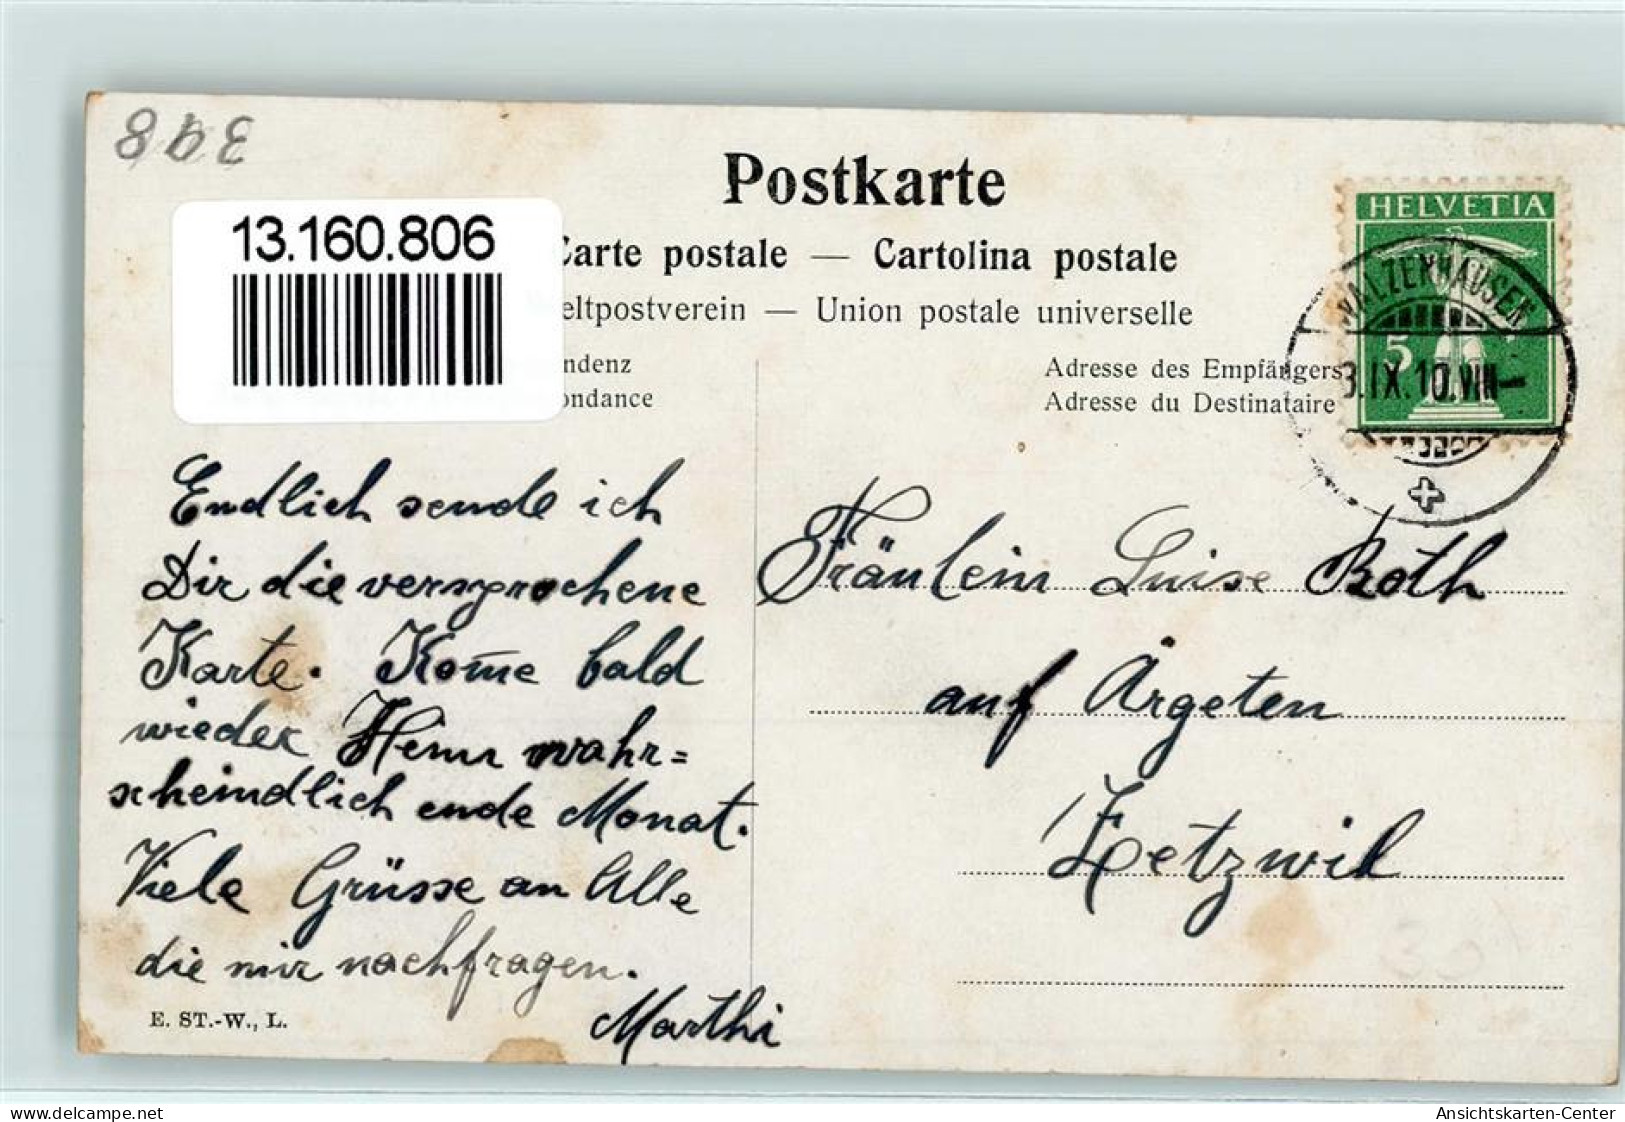 398
13.160.806
Postkarte
Carte postale — Cartolina postale
eltpostverein — Union postale universelle
ndenz
ondance
Adresse des Empfängers
Adresse du Destinataire
HELVETIA
5
WALZENHAUSEN
3.IX.10.VIII—
Endlich sende ich
Dir die versprochene
Karte. Kom̄e bald
wieder Heim wahr=
scheindlich ende Monat.
Viele Grüsse an Alle
die mir nachfragen.
Marthi
Fräulein Luise Roth
auf Ärgeten
Zetzwil
E. ST.-W., L.
www.delcampe.net
Ansichtskarten-Center